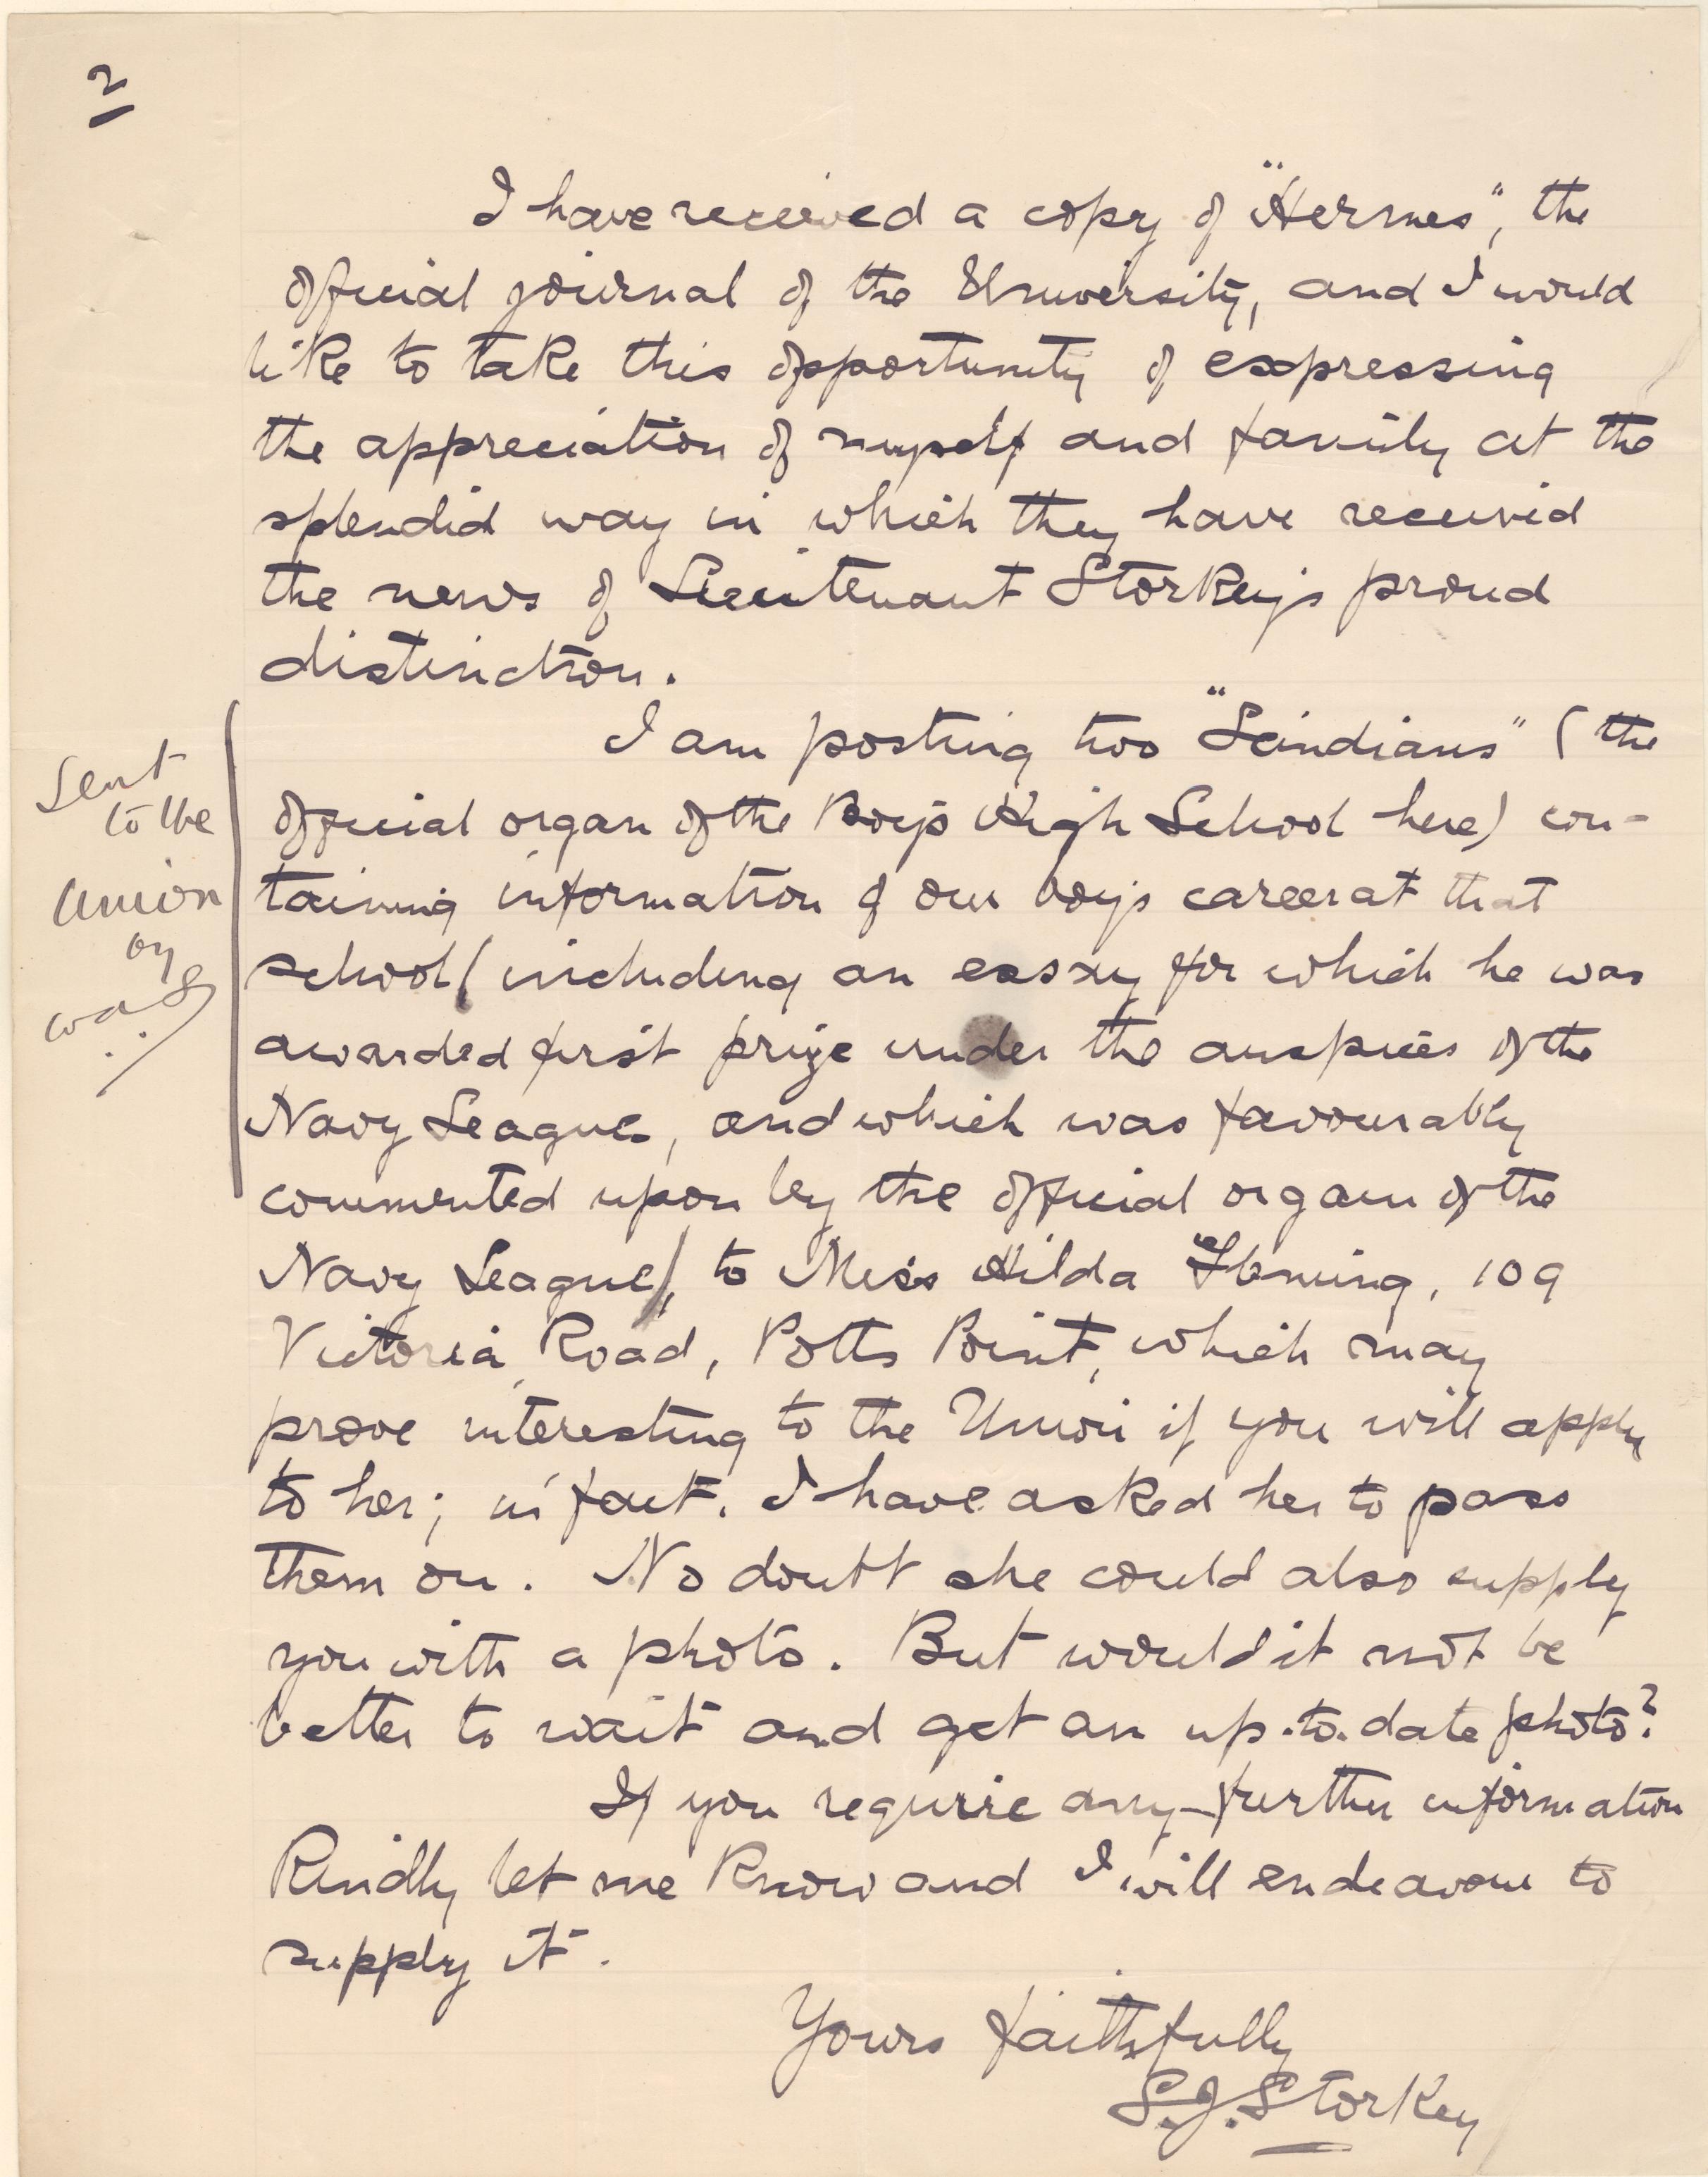 2
I have received a copy of "Hermes", the
official journal of the University, and I would
like to take this opportunity of expressing
the appreciation of myself and family at the
splendid way in which they have received
the news of Lieutenant Storkey's proud
distinction.
I am posting two "Scindians" (the
official organ of the Boys High School here) con-
taining information of our boy's career at that
school (including an essay for which he was
awarded first prize under the auspices of the
Navy League, and which was favourably
commented upon by the official organ of the
Navy League), to Miss Hilda Fleming, 109
Victoria Road, Potts Point, which may
prove interesting to the Union if you will apply
to her; in fact, I have asked her to pass
them on. No doubt she could also supply
you with a photo. But would it not be
better to wait and get an up-to-date photo?
If you require any further information
kindly let me know and I will endeavour to
supply it.
Yours faithfully
S.J. Storkey
Sent
to the
Union
by